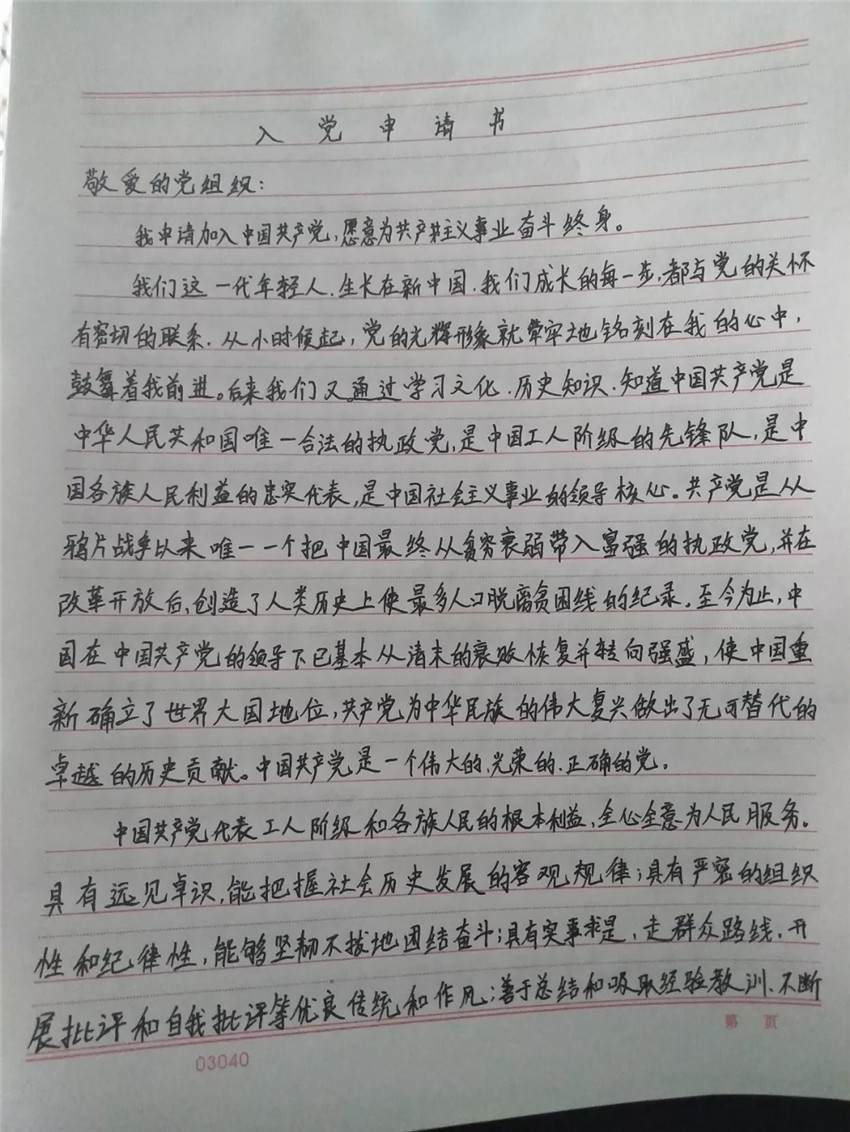 入党申请书
敬爱的党组织：
我申请加入中国共产党，愿意为共产主义事业奋斗终身。
我们这一代年轻人、生长在新中国、我们成长的每一步，都与党的关怀
有密切的联系、从小时候起，党的光辉形象就牢牢地铭刻在我的心中，
鼓舞着我前进。后来我们又通过学习文化、历史知识、知道中国共产党是
中华人民共和国唯一合法的执政党，是中国工人阶级的先锋队，是中
国各族人民利益的忠实代表，是中国社会主义事业的领导核心。共产党是从
鸦片战争以来唯一一个把中国最终从贫穷衰弱带入富强的执政党，并在
改革开放后，创造了人类历史上使最多人口脱离贫困线的纪录。至今为止，中
国在中国共产党的领导下已基本从清末的衰败恢复并转向强盛，使中国重
新确立了世界大国地位，共产党为中华民族的伟大复兴做出了无可替代的
卓越的历史贡献。中国共产党是一个伟大的、光荣的、正确的党。
中国共产党代表工人阶级和各族人民的根本利益，全心全意为人民服务。
具有远见卓识，能把握社会历史发展的客观规律；具有严密的组织
性和纪律性，能够坚韧不拔地团结奋斗；具有实事求是，走群众路线、开
展批评和自我批评等优良传统和作风；善于总结和吸取经验教训、不断
第 页
03040